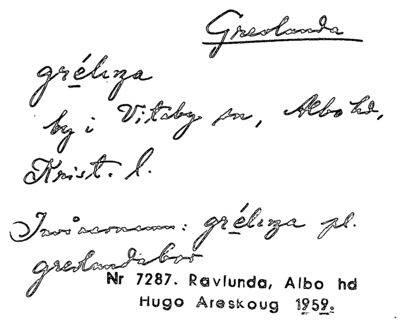 Grevlunda
gréləŋa
by i Vitaby sn, Albo hd,
Krist. l.
Invånarnamn: gréləŋa pl.
grevlundabor
Nr 7287. Ravlunda, Albo hd
Hugo Areskoug 1959.